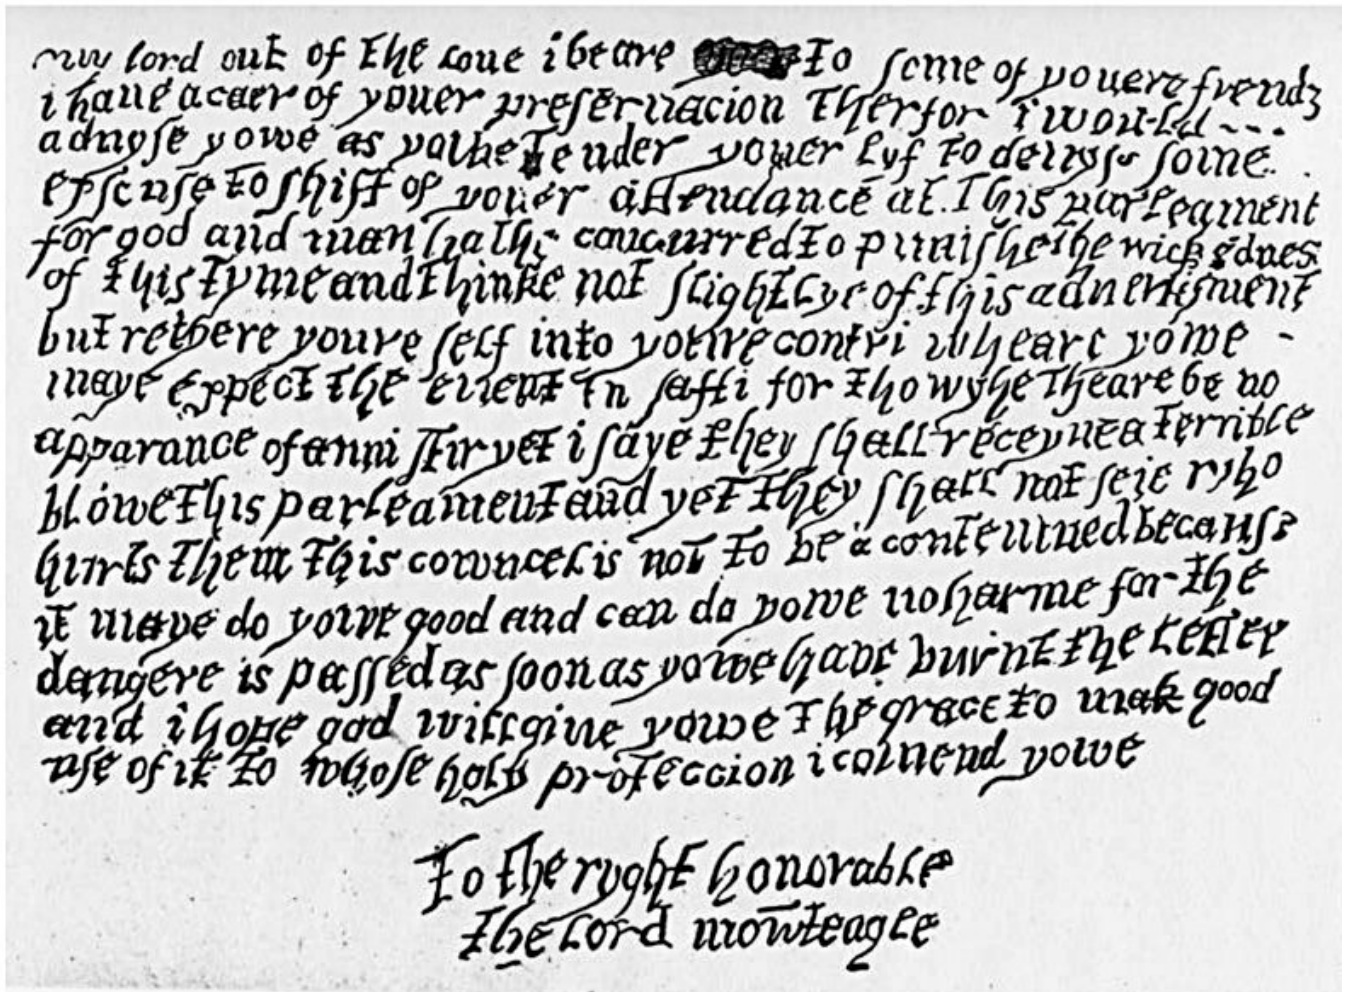 my lord out of the loue i beare to some of youere frendz
i haue a caer of youer preseruacion therfor i would
aduyse yowe as yowe tender youer lyf to deuyse some
exscuse to shift of youer attendance at this parleament
for god and man hathe concurred to punishe the wickednes
of this tyme and thinke not slightlye of this aduertisment
but rethere youre self into youre contri wheare yowe
maye expect the euent in safti for thowghe theare be no
apparance of anni stir yet i saye they shall receyue a terrible
blowe this parleament and yet they shall not seie who
hurts them this cowncel is not to be a contemned because
it maye do yowe good and can do yowe no harme for the
dangere is passed as soon as yowe haue burnt the letter
and i hope god will giue yowe the grace to mak good
use of it to whose holy proteccion i comend yowe
to the ryght honorable
the lord mowteagle